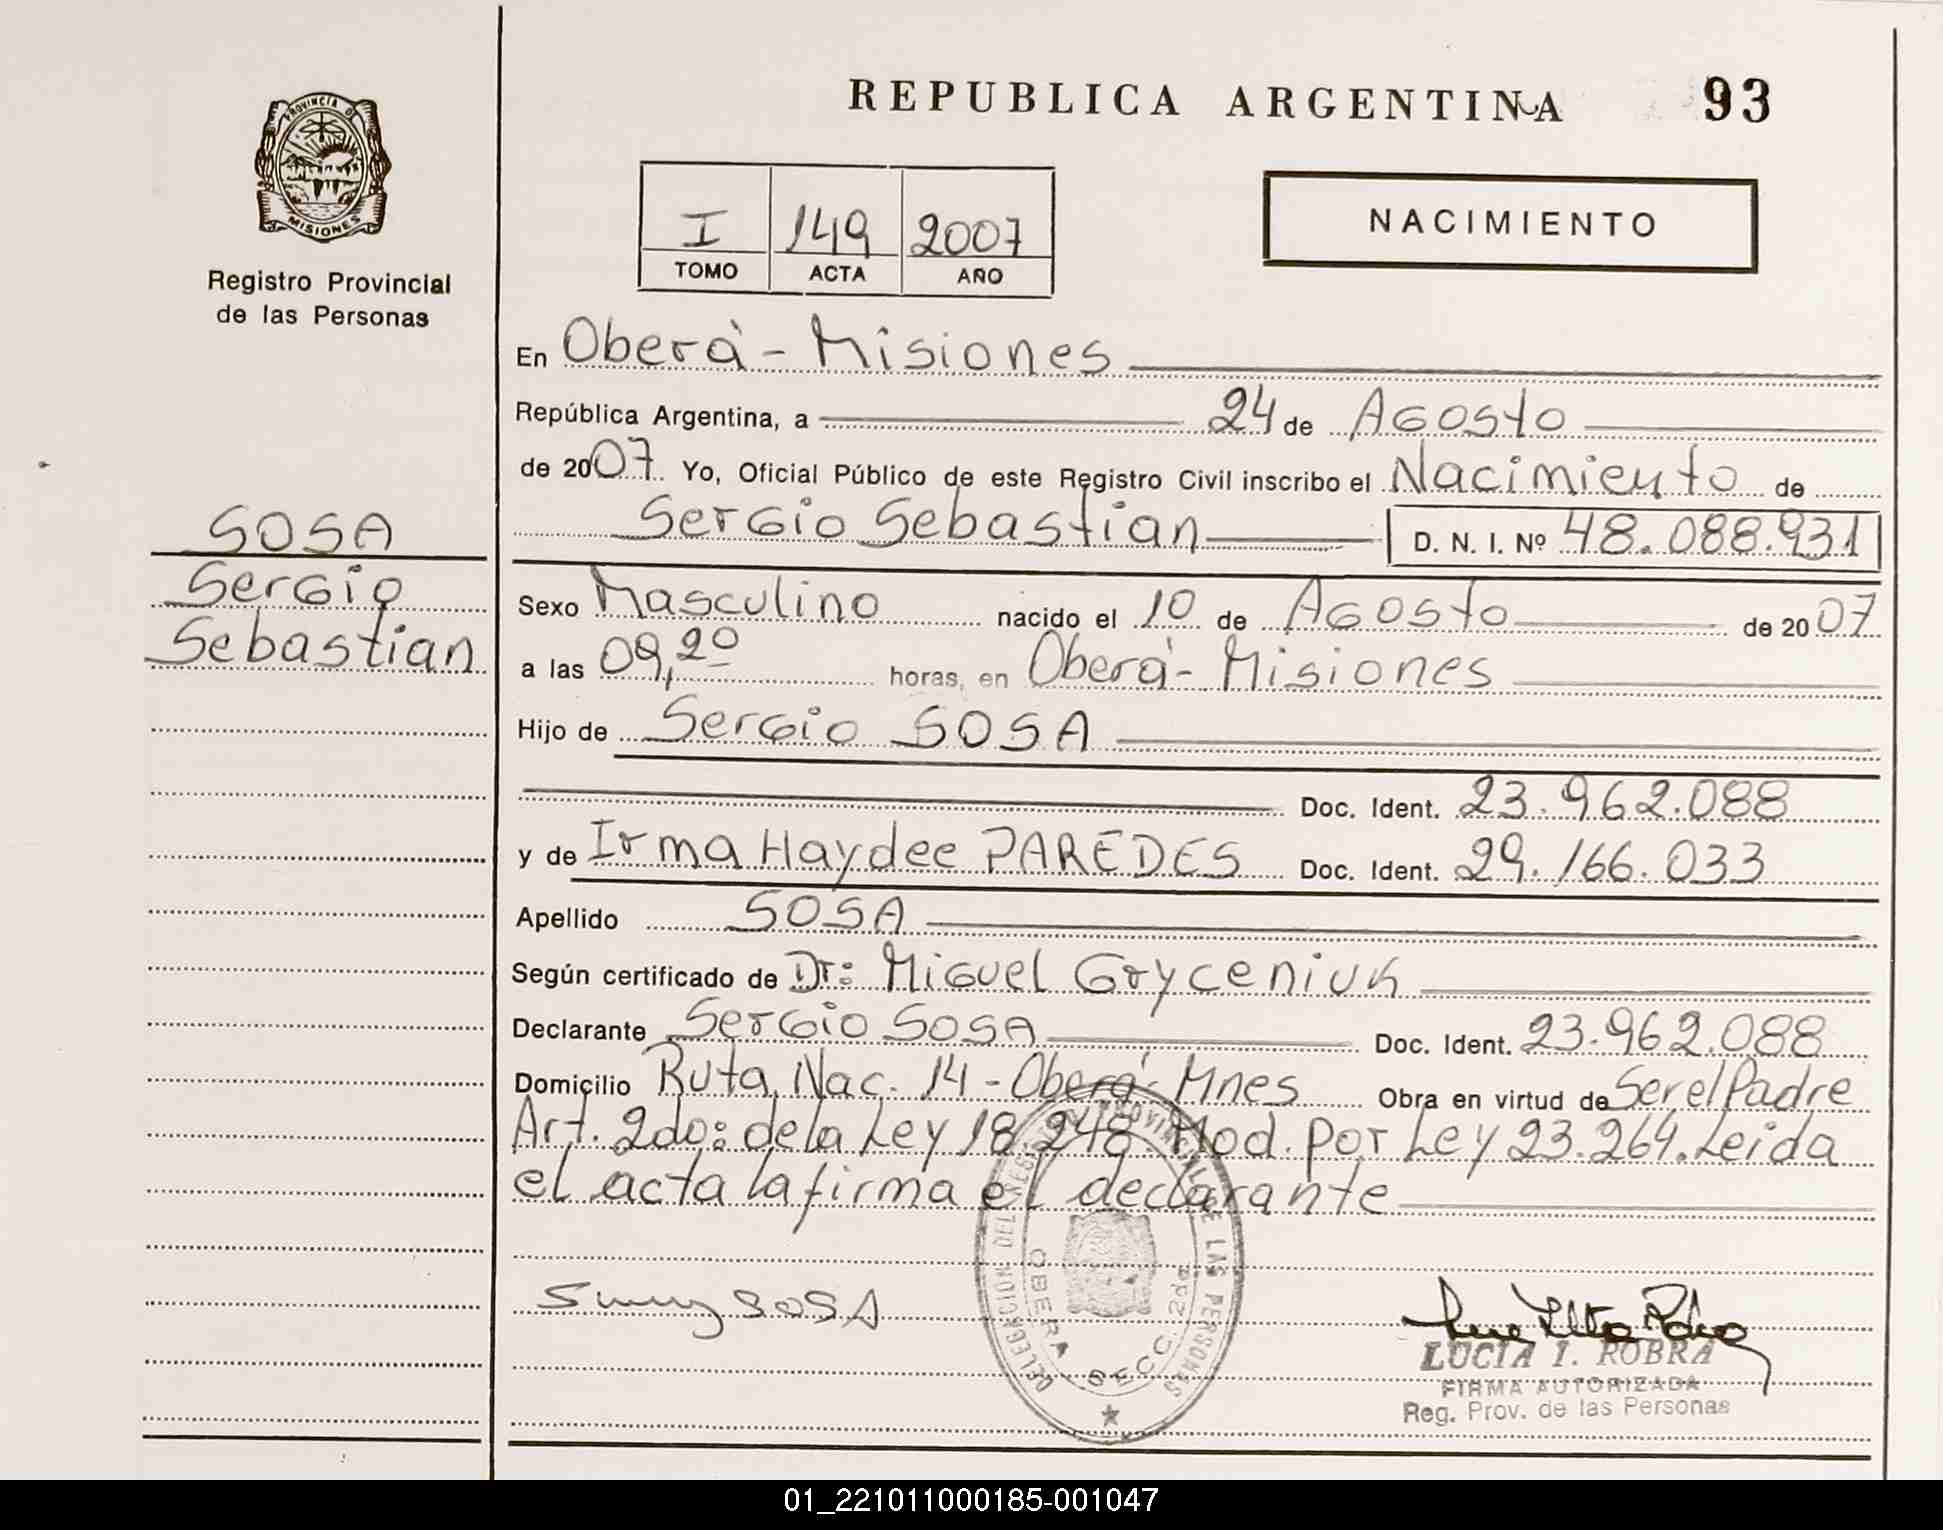 REPUBLICA ARGENTINA 93
PROVINCIA DE
MISIONES
Registro Provincial
de las Personas
I 149 2007
TOMO ACTA AÑO
NACIMIENTO
En Oberá - Misiones
República Argentina, a 24 de Agosto
de 2007. Yo, Oficial Público de este Registro Civil inscribo el Nacimiento de
Sergio Sebastian D. N. I. Nº 48.088.931
SOSA
Sergio
Sebastian
Sexo Masculino nacido el 10 de Agosto de 2007
a las 09,20 horas, en Oberá - Misiones
Hijo de Sergio SOSA
Doc. Ident. 23.962.088
y de Irma Haydee PAREDES Doc. Ident. 29.166.033
Apellido SOSA
Según certificado de Dr: Miguel Gryceniuk
Declarante Sergio SOSA Doc. Ident. 23.962.088
Domicilio Ruta Nac. 14 - Oberá - Mnes Obra en virtud de Ser el Padre
Art. 2do: de la Ley 18.248 Mod. por Ley 23.264. Leida
el acta la firma el declarante
DELEGACION DEL REGISTRO PROVINCIAL DE LAS PERSONAS
OBERA SECC. 2da
SOSA
LUCIA I. ROBRA
FIRMA AUTORIZADA
Reg. Prov. de las Personas
01_221011000185-001047